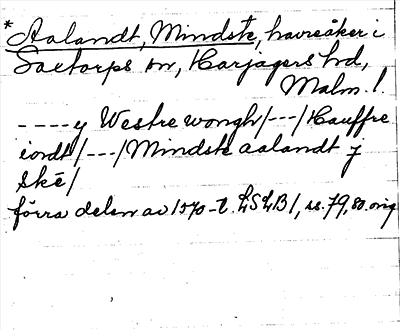 * Aalandt, Mindste, havreåker i
Saxtorps sn, Harjagers hd,
Malm. l.
---- y Westre wongh/---/Hauffre
iordt/---/Mindste aalandt j
Skē/
förra delen av 1570-t. LSLB1, ss. 79, 80. orig